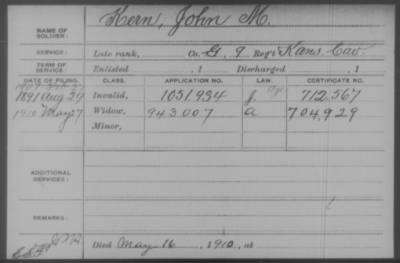 NAME OF SOLDIER: Hern, John M.
SERVICE: Late rank, Co. G, 9 Reg't Kans. Cav
TERM OF SERVICE: Enlisted , 1 Discharged , 1
DATE OF FILING. CLASS. APPLICATION NO. LAW. CERTIFICATE NO.
1891 Aug 24 Invalid, 1051.934 J. 712.567
1910 May 27 Widow, 943007 a 704,929
Minor,
ADDITIONAL SERVICES:
REMARKS:
Died May 16, 1910, at